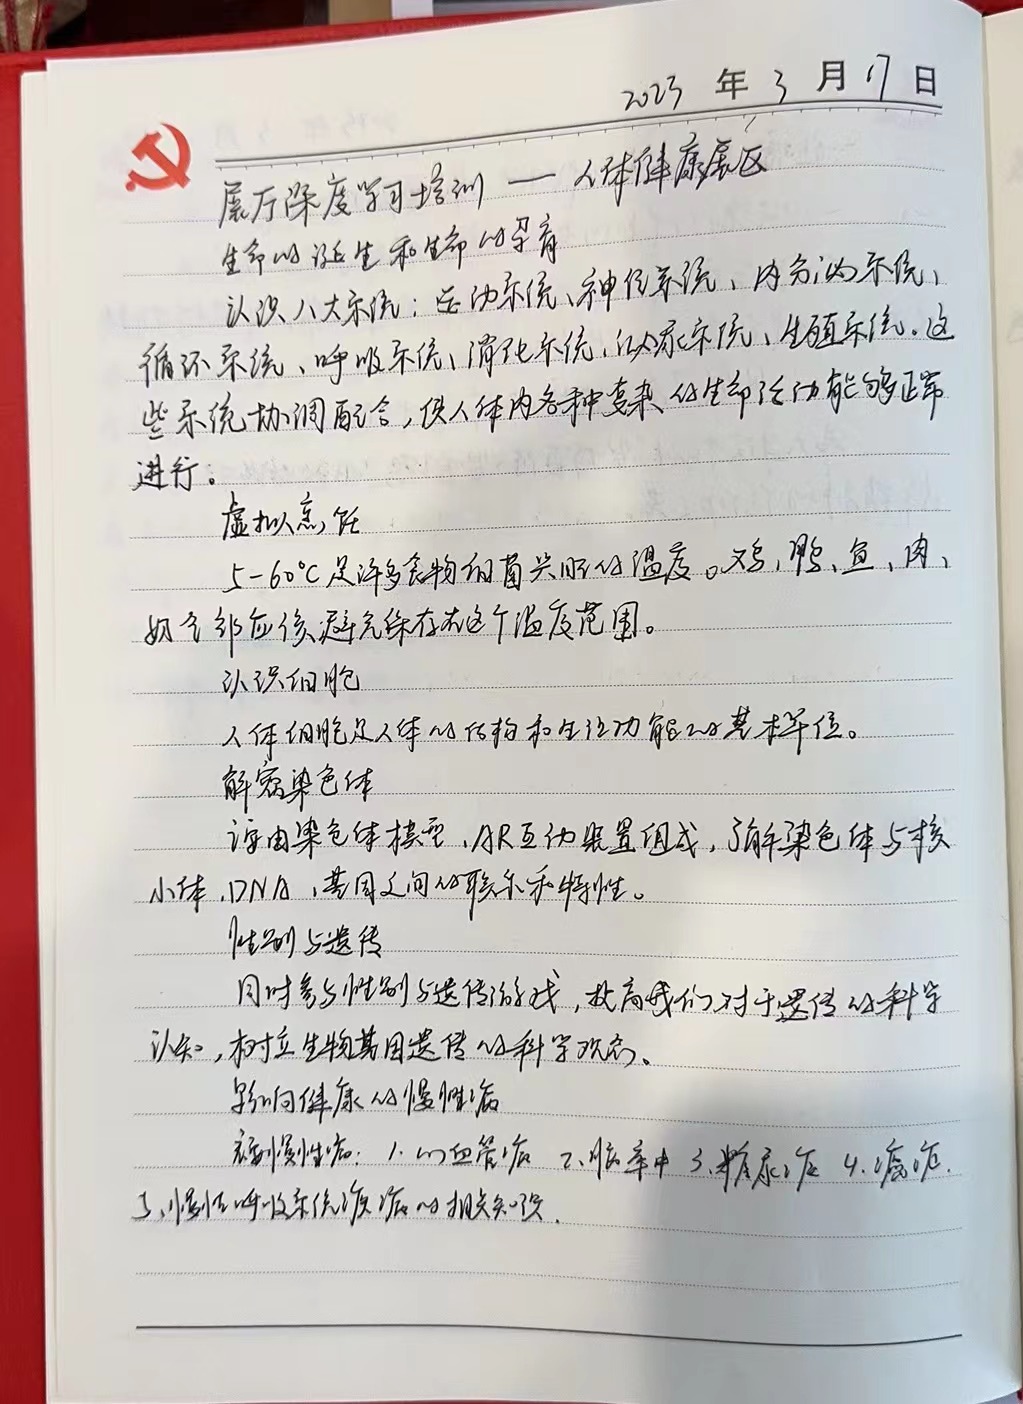 2023年3月17日
展厅深度学习培训——人体健康展区
生命的诞生和生命的孕育
认识八大系统：运动系统、神经系统、内分泌系统、
循环系统、呼吸系统、消化系统、泌尿系统、生殖系统。这
些系统协调配合，使人体内各种复杂的生命活动能够正常
进行。
虚拟烹饪
5-60℃是许多食物细菌兴旺的温度。鸡、鸭、鱼、肉、
奶等都应该避免保存在这个温度范围。
认识细胞
人体细胞是人体的结构和生理功能的基本单位。
解密染色体
该由染色体模型、AR互动装置组成，了解染色体与核
小体、DNA、基因之间的联系和特性。
性别与遗传
同时参与性别与遗传游戏，提高我们对于遗传的科学
认知，树立生物基因遗传的科学观念。
影响健康的慢性病
慢性病：1.心血管病 2.脑卒中 3.糖尿症 4.癌症.
5、慢性呼吸系统疾病的相关知识.